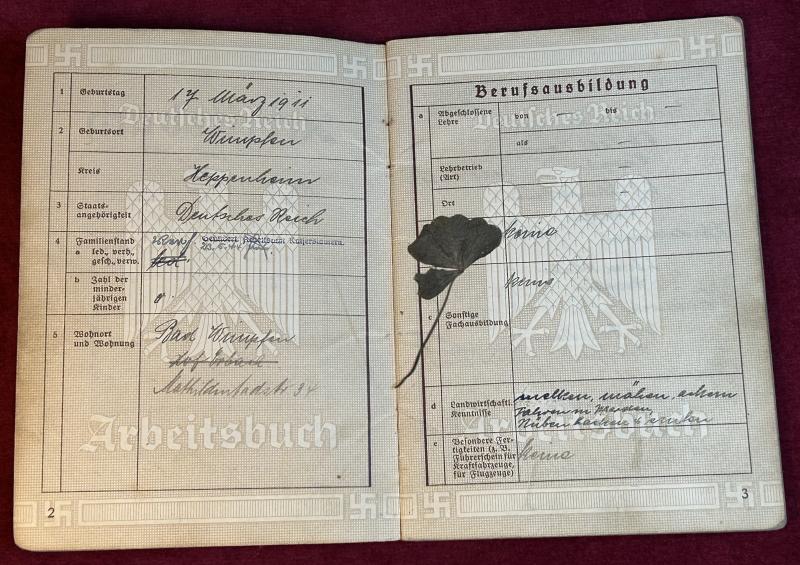 1 Geburtstag 17 März 1911
2 Geburtsort Wimpfen
Kreis Heppenheim
3 Staats-
angehörigkeit Deutsches Reich
4 Familienstand
a led., verh.,
gesch., verw.
Geändert Arbeitsamt Kaiserslautern
b Zahl der
minder-
jährigen
Kinder 0
5 Wohnort
und Wohnung
Bad Wimpfen
Mathildenbadstr 34
Deutsches Reich
Arbeitsbuch
2
Berufsausbildung
a Abgeschlossene
Lehre
von — bis —
als —
Lehrbetrieb
(Art) —
Ort —
keine
c Sonstige
Fachausbildung
keine
d Landwirtschaftl.
Kenntnisse
melken, mähen, ackern
Fahren m Pferden,
Rüben hacken u
e Besondere Fer-
tigkeiten (z. B.
Führerschein für
Kraftfahrzeuge,
für Flugzeuge)
keine
Deutsches Reich
Arbeitsbuch
3